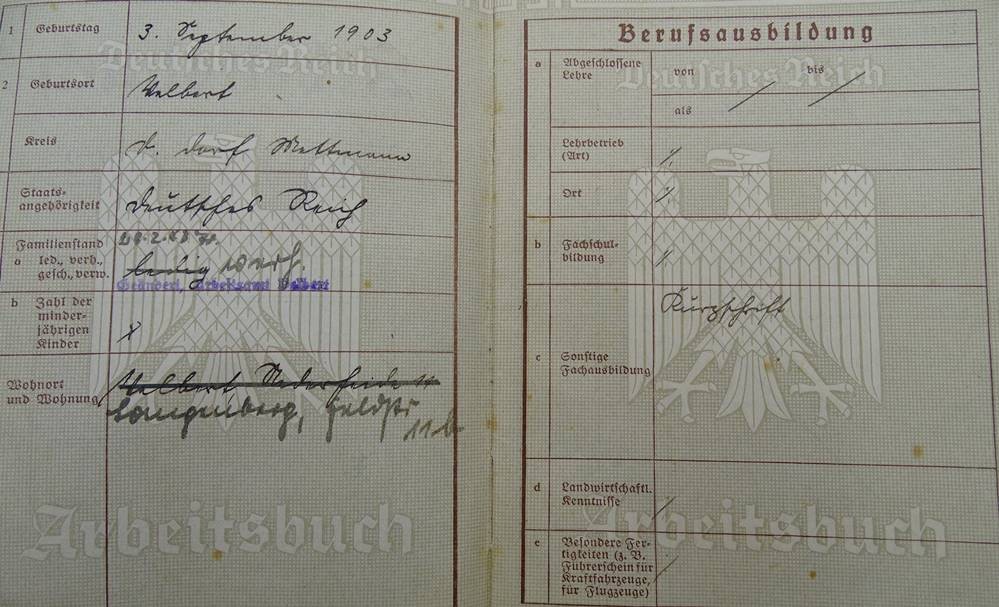 1 Geburtstag 3. September 1903
2 Geburtsort Velbert
Kreis D. dorf Mettmann
Staats-
angehörigkeit Deutsches Reich
Familienstand
a led., verh.,
gesch., verw. ledig verh.
Geändert, Arbeitsamt Velbert
b Zahl der
minder-
jährigen
Kinder
Wohnort Velbert
und Wohnung Langenberg, Feldstr
11 b
Deutsches Reich
Arbeitsbuch
Berufsausbildung
a Abgeschlossene
Lehre
von bis
als
Lehrbetrieb
(Art)
Ort
b Fachschul-
bildung
Kurzschrift
c Sonstige
Fachausbildung
d Landwirtschaftl.
Kenntnisse
e Besondere Fer-
tigkeiten (z. B.
Führerschein für
Kraftfahrzeuge,
für Flugzeuge)
Deutsches Reich
Arbeitsbuch